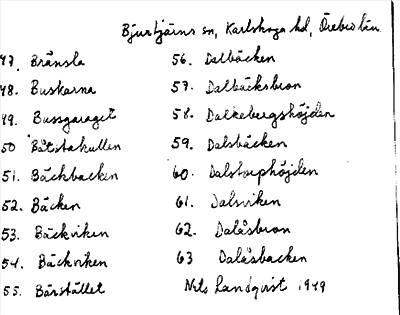 Bjurtjärns sn, Karlskoga hd, Örebro län
47. Bränsla
48. Buskarna
49. Bussgaraget
50 Båtstakullen
51. Bäckbacken
52. Bäcken
53. Bäckviken
54. Bäckviken
55. Bärstället
56. Dalbäcken
57. Dalbäcksbron
58. Dalkebergshöjden
59. Dalsbäcken
60. Dalstorphöjden
61. Dalsviken
62. Dalåsbron
63 Dalåsbacken
Nils Landqvist 1949